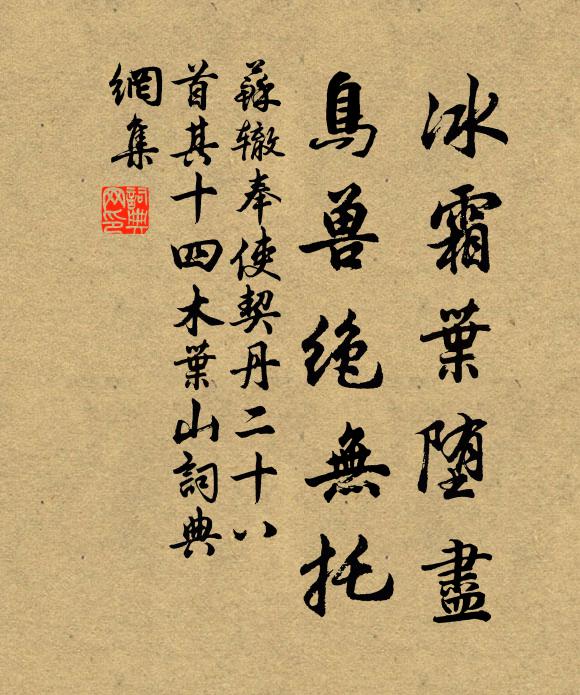 冰霜葉墮盡
鳥獸絕無托
蘇轍奉使契丹二十八
首其十四木葉山詞典
網集
詞典
网印